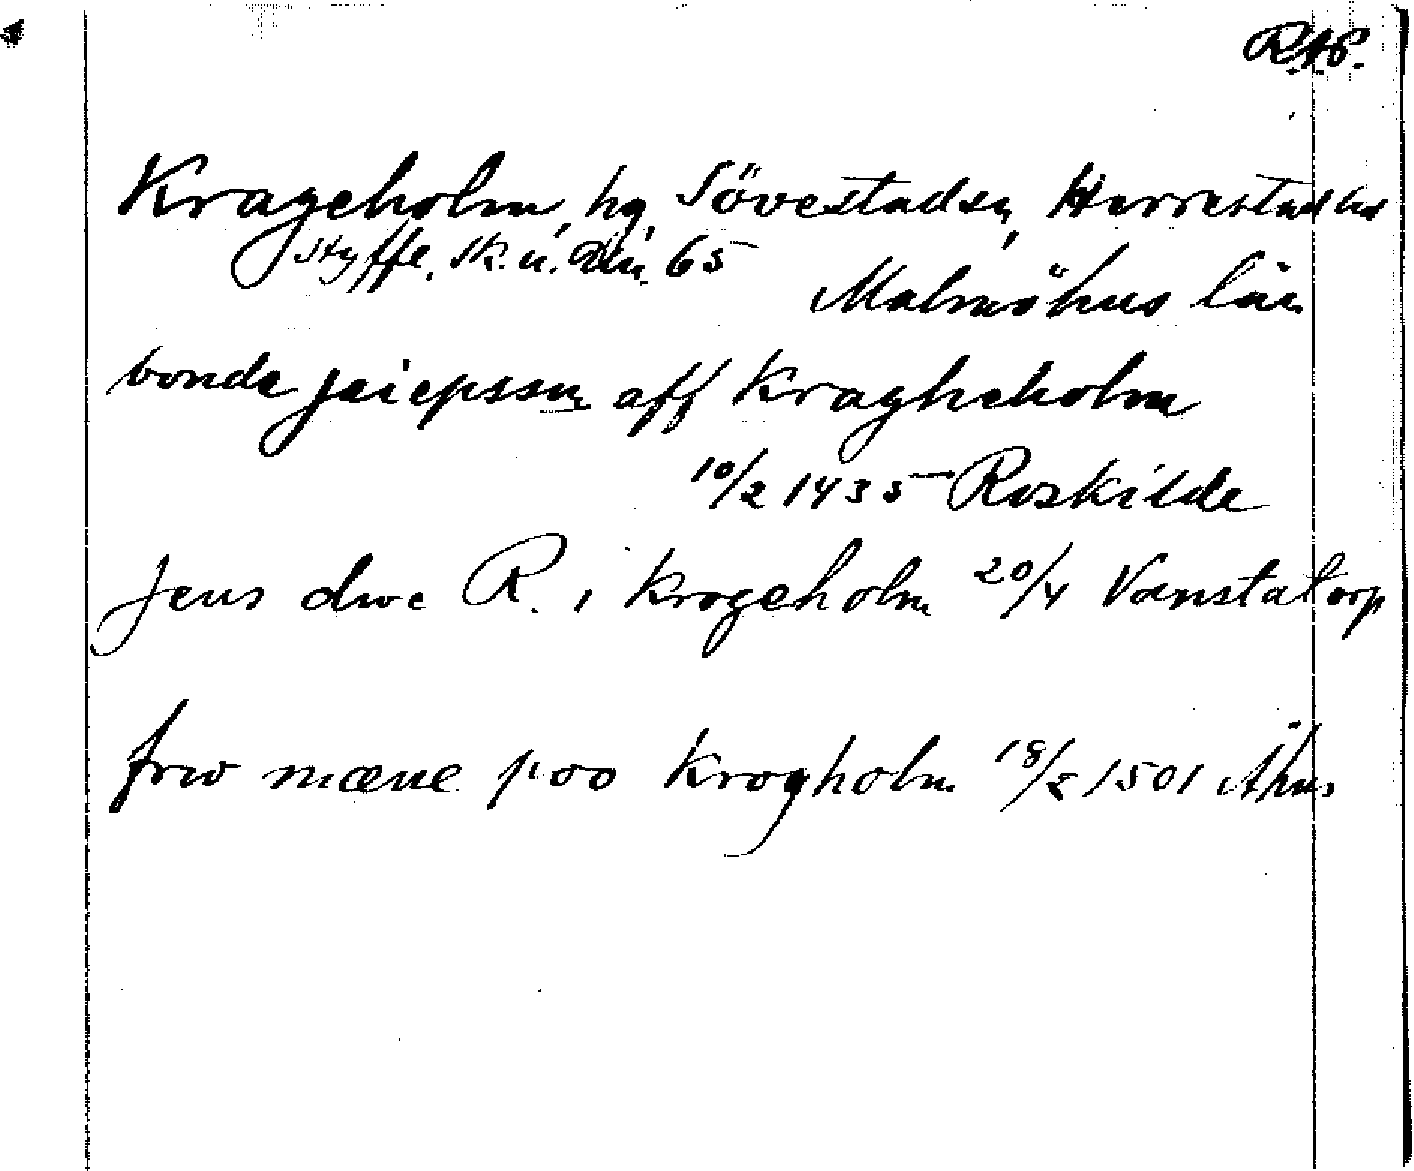 R.A.P.
Krageholm, hg, Sövestads sn, Herrestads hd
Styffe, Sk. u. Un. 65
Malmöhus län
bonde jeiepssn aff Kragheholm
10/2 1435 Roskilde
Jens dwe R. i krogeholm 20/4 Vanstatorp
frw mæne poo krogholm 18/2 1501 Åhus